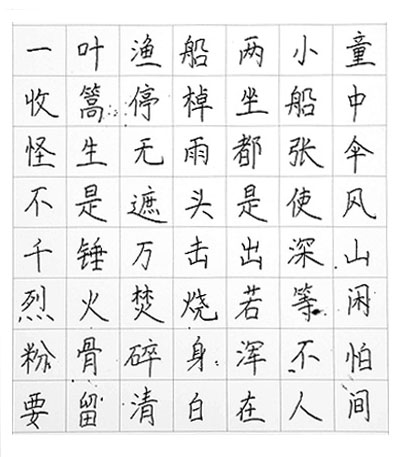 一叶渔船两小童
收篙停棹坐船中
怪生无雨都张伞
不是遮头是使风
千锤万击出深山
烈火焚烧若等闲
粉骨碎身浑不怕
要留清白在人间